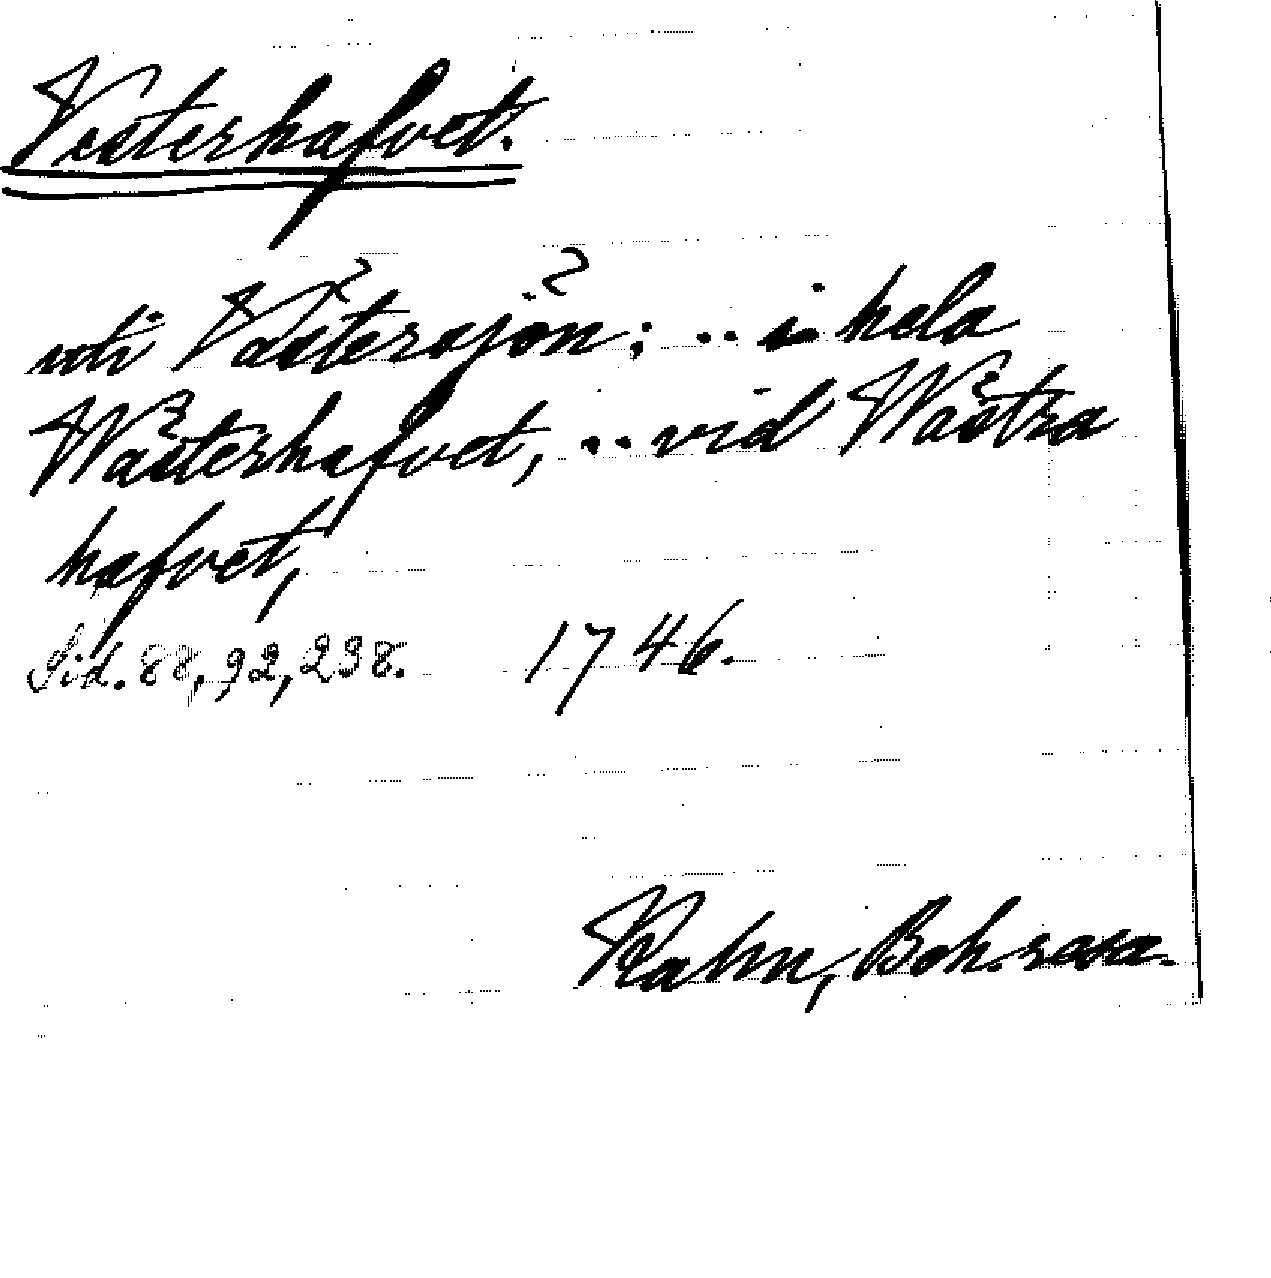 Vesterhafvet.
uti Västersjön; .. i hela
Wästerhafvet, .. vid Wästra
hafvet,
Sid. 88, 92, 238. 1746.
Kalm, Boh. resa.